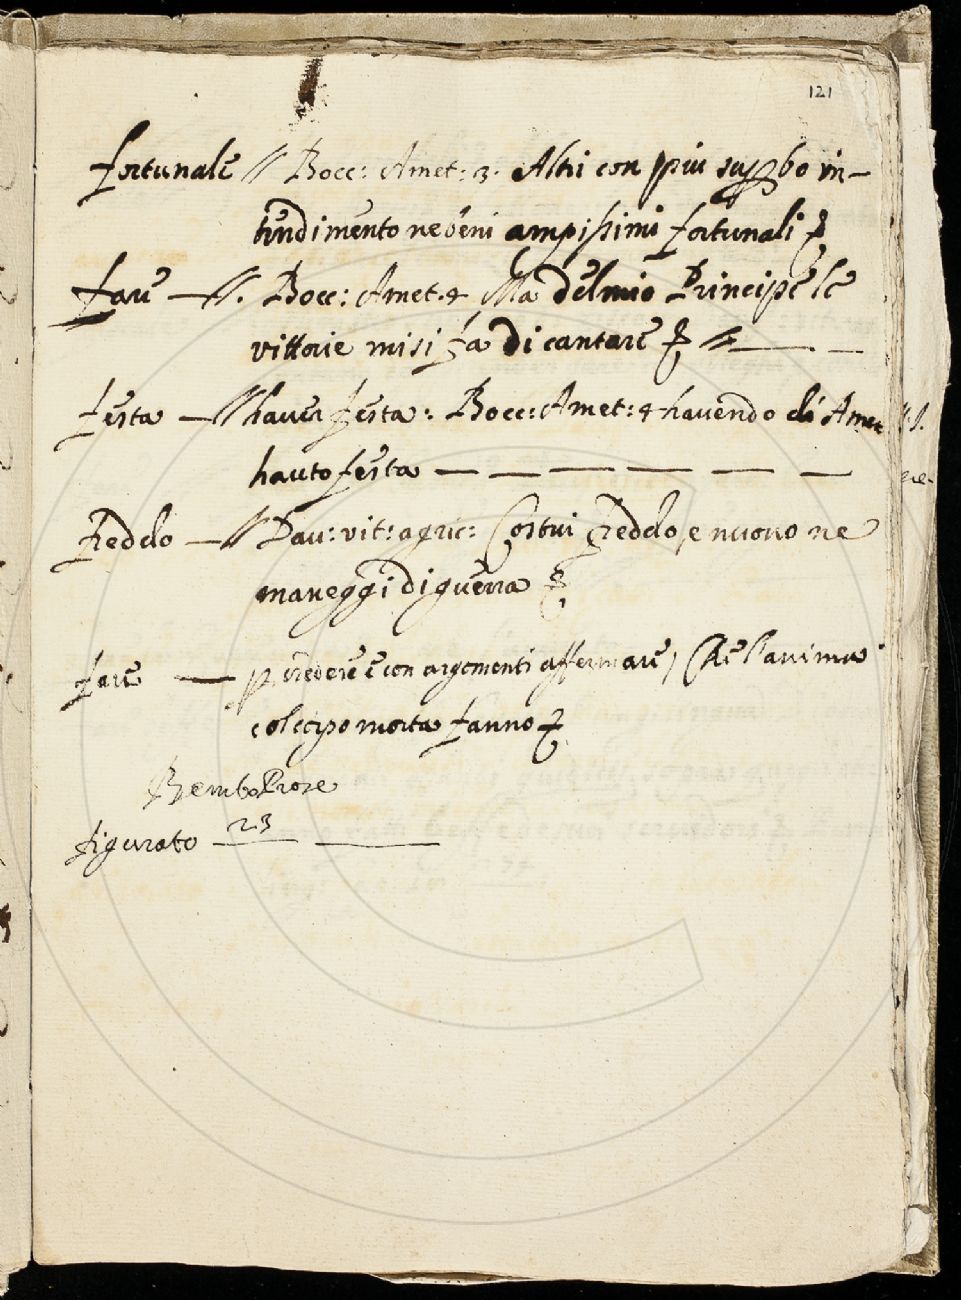 121
fortunale // Bocc: Amet: 3. Altri con piu superbo in-
tendimento ne beni ampissimi fortunali &
fare — //. Bocc: Amet. 4 Ma del mio Principe le
vittorie misi fa di cantare & //— —
festa —// haver festa: Bocc: Amet: 4 havendo di Amet
hauto festa — — — — — —
freddo —// Dav: vit: agric: Costui freddo, e nuovo ne
maneggi di guerra &
fare — credere e con argomenti affermare, Che l'anima
col corpo morta fanno &
Bembo Prose
figurato 23 —